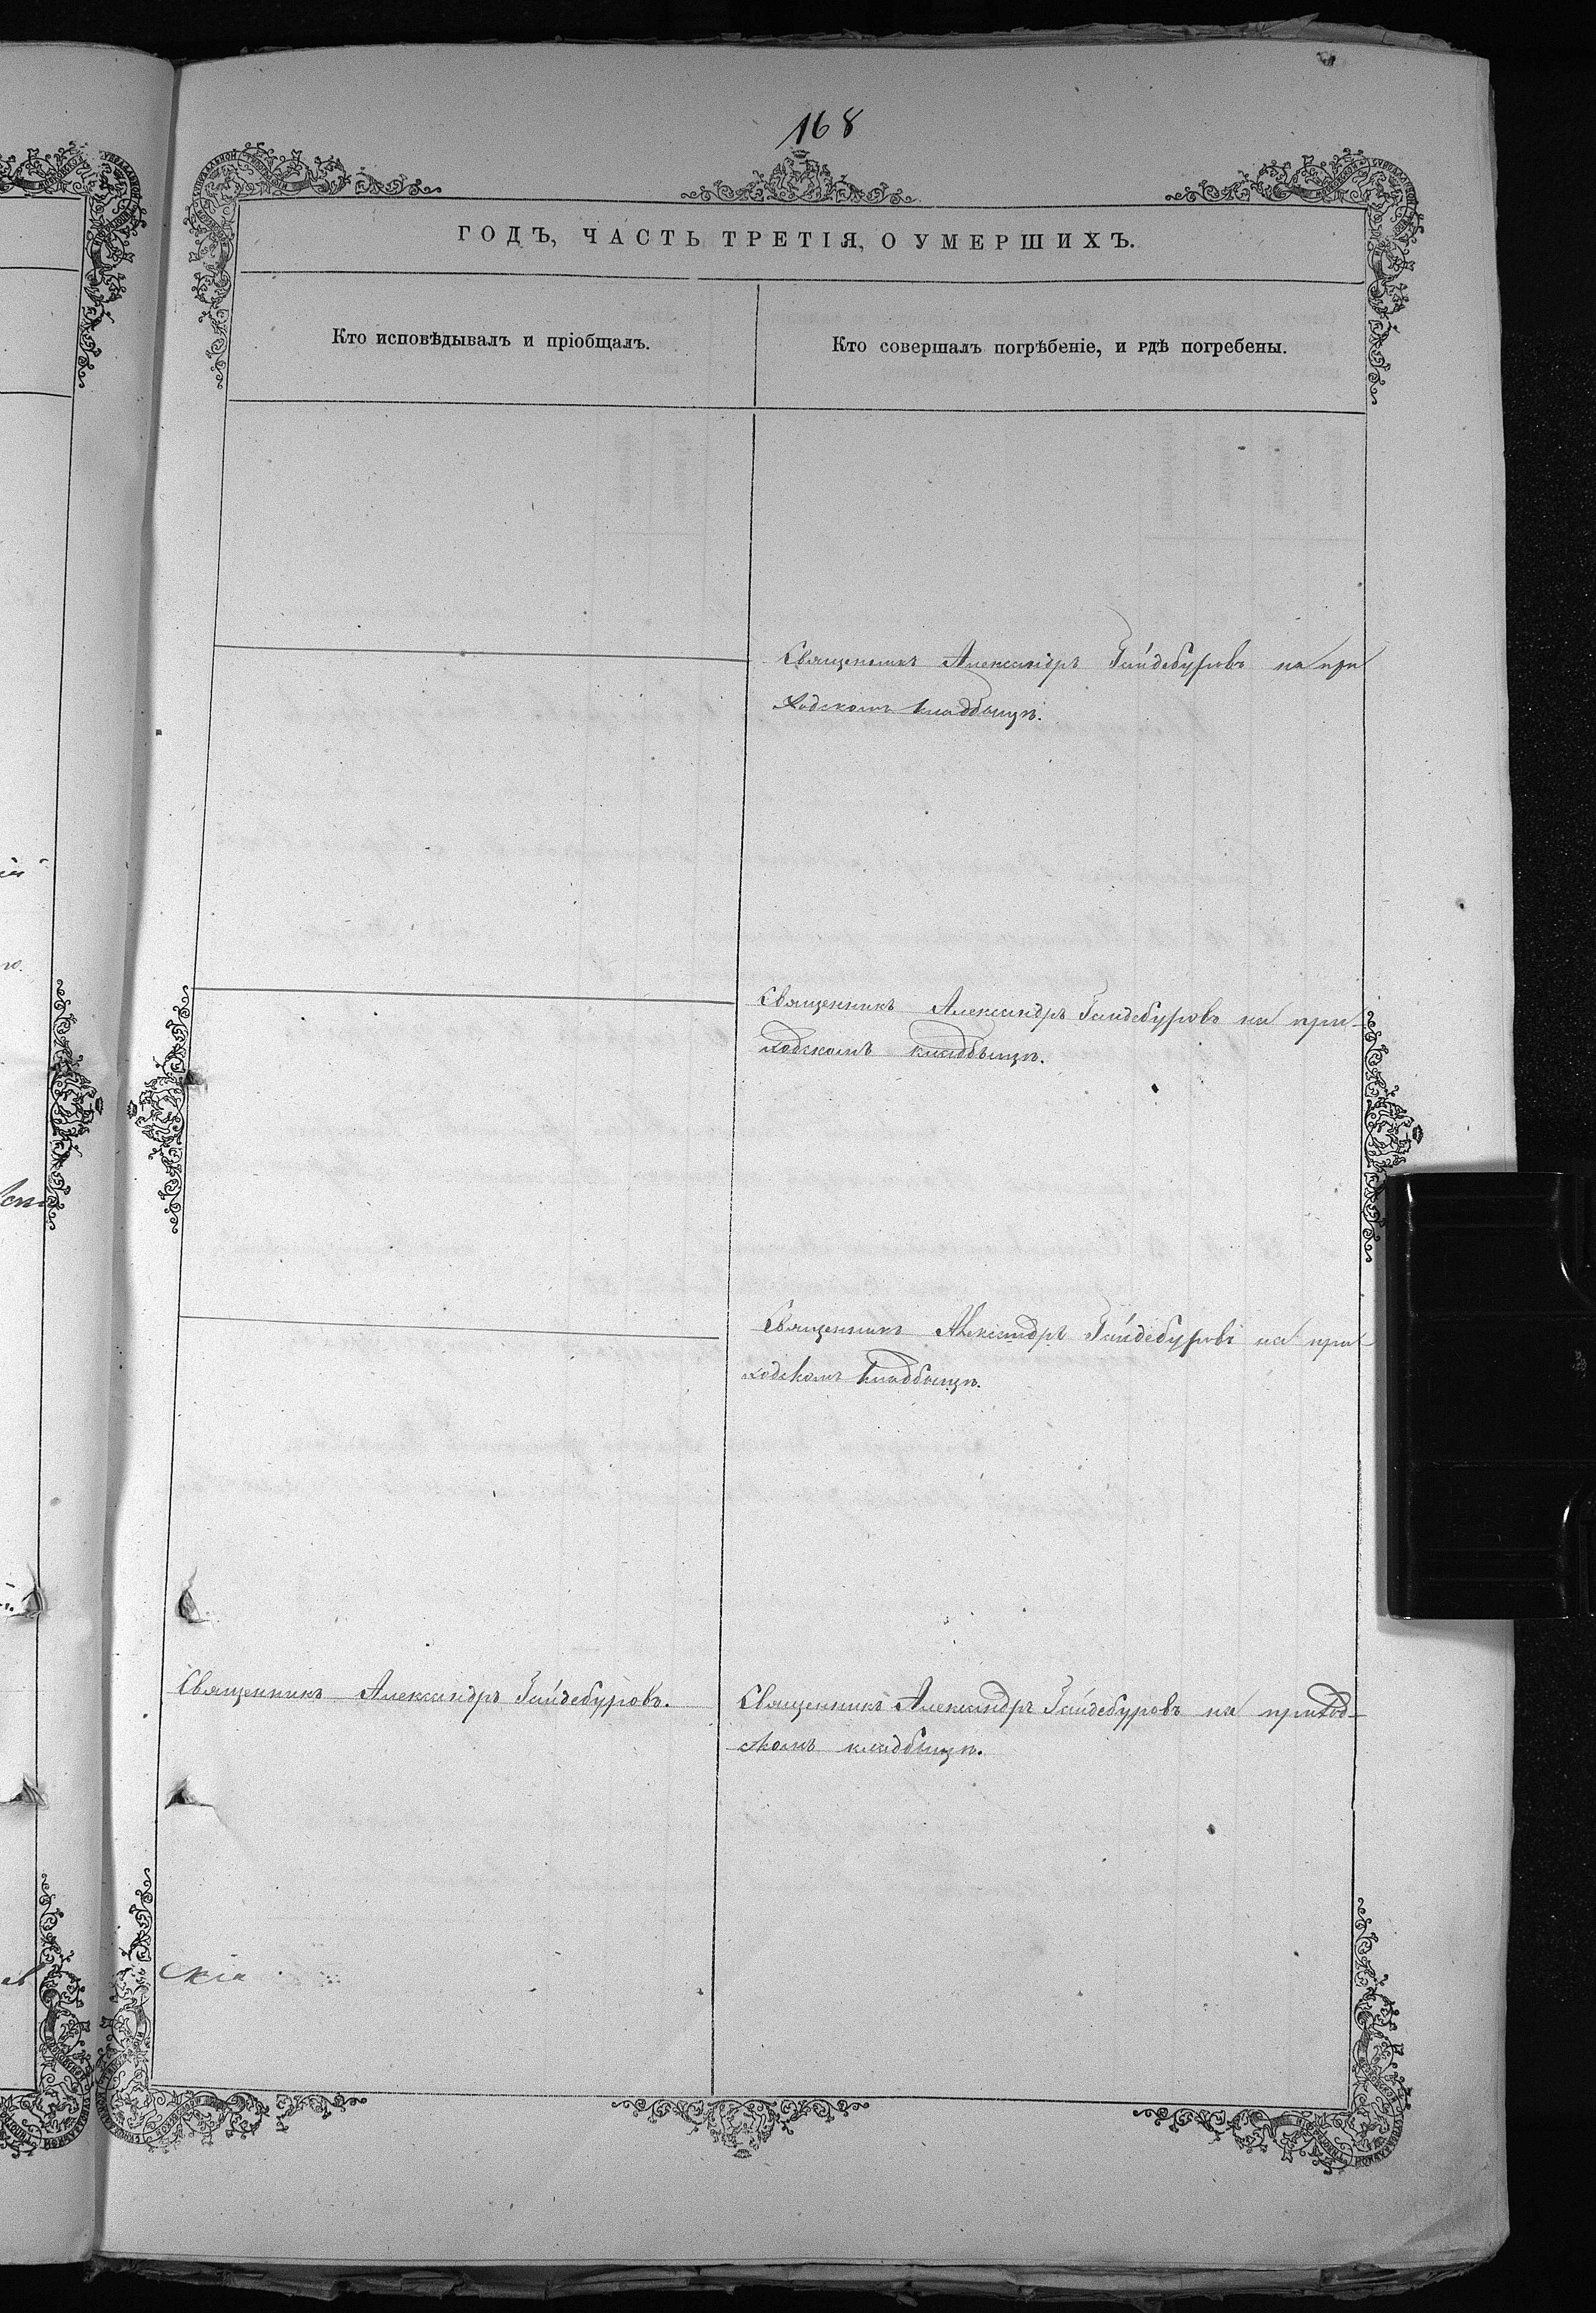 168
ГОДЪ, ЧАСТЬ ТРЕТІЯ, О УМЕРШИХЪ.
Кто исповѣдывалъ и пріобщалъ.
Кто совершалъ погрѣбеніе, и гдѣ погребены.
Священникъ Александръ Гайдебуровъ на при
ходскомъ кладбищѣ.
Священникъ Александръ Гайдебуровъ на при-
ходскомъ кладбищѣ.
Священникъ Александръ Гайдебуровъ на при-
ходскомъ кладбищѣ.
Священникъ Александръ Гайдебуровъ.
Священникъ Александръ Гайдебуровъ на приход-
скомъ кладбищѣ.